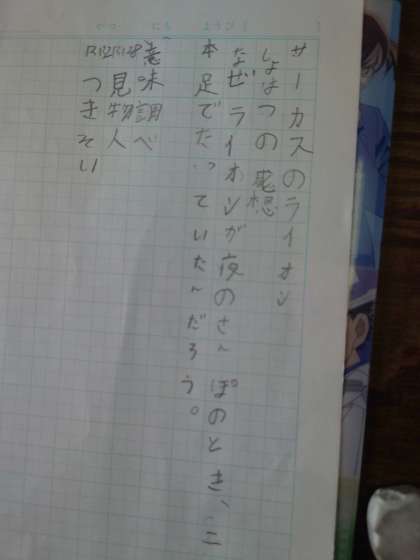 がつ　にち　ようび
サーカスのライオン
しょはつの感想
なぜライオンが夜のさんぽのとき、二
本足でたっていたんだろう。
意味調べ
見物人
つきそい